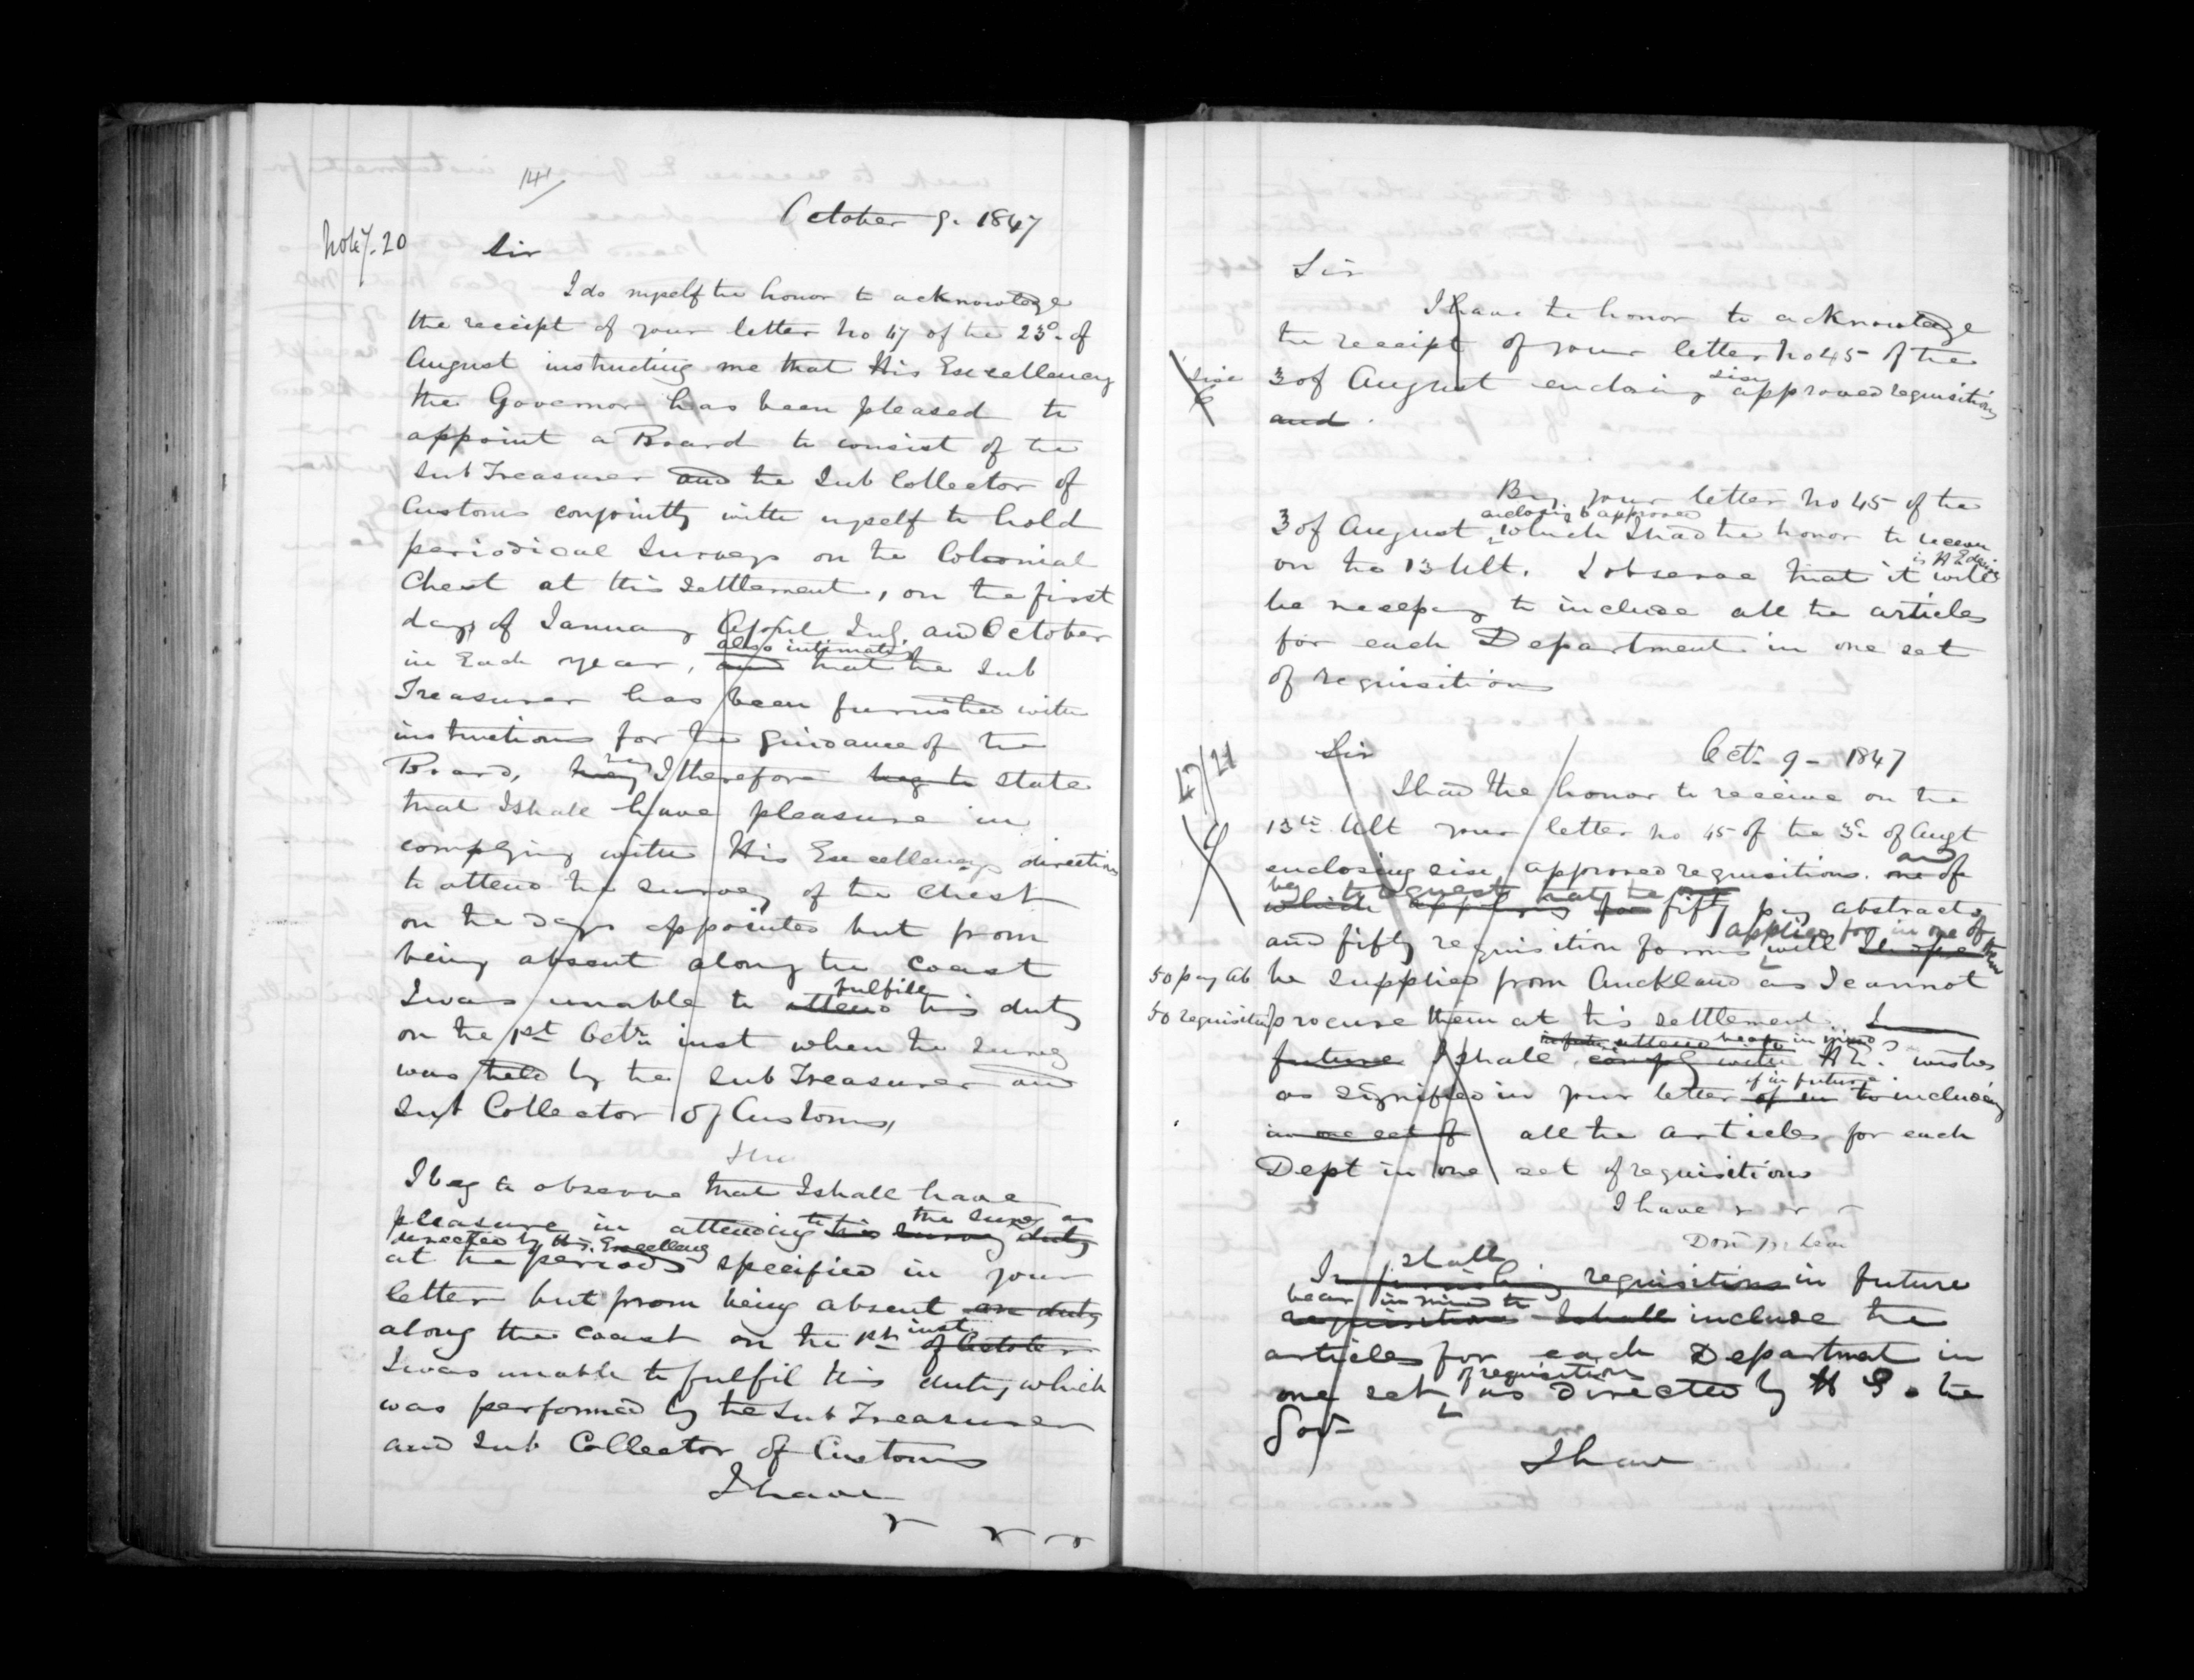 141
October 9. 1847
20
Sir
I do myself the honor to acknowledge
the receipt of your letter No 47 of the 23d. of
August instructing me that His Excellency
the Governor has been pleased to
appoint a Board to consist of the
Sub Treasurer and the Sub Collector of
Customs conjointly with myself to hold
periodical Surveys on the Colonial
Chest at this Settlement, on the first
days of January April July and October
also intimating
in Each year, and that the Sub
Treasurer has been furnished with
instructions for the guidance of the
Board, I therefore beg to state
that I shall have pleasure in
complying with His Excellencys directions
to attend the survey of the Chest
on the days appointed but from
being absent along the Coast
fulfill
I was unable to attend this duty
on the 1st Octr inst when the survey
was held by the Sub Treasurer and
Sub Collector of Customs,
I beg to observe that I shall have
the survey as
pleasure in attending to this survey duty
directed by His Excellency
at the periods specified in your
letter but from being absent on duty
inst
along the Coast on the 1st of October
I was unable to fulfil this duty which
was performed by the Sub Treasurer
and Sub Collector of Customs
I have
Sir
I have the honor to acknowledge
the receipt of your letter No 45 of the
3 of August enclosing six approved requisitions
and
By your letter No 45 of the
enclosing 6 approved
3 of August which I had the honor to receive
on the 13 Ult. I observe that it will
be necessary to include all the articles
for each Department in one set
of requisitions
21
Sir Oct. 9 - 1847
I had the honor to receive on the
13th Ult your letter No 45 of the 3d of Augt
and
enclosing six approved requisitions. one of
beg to request that the
which applying for fifty pay abstracts
applied for in one of them
and fifty requisition forms will I hope
50 pay ab be supplied from Auckland as I cannot
50 requisition procure them at this settlement. In
bear in mind
future I shall comply with H E. wishes
of in future
as signified in your letter of in to including
in one set of all the articles for each
Dept in one set of requisitions
I have
shall
In furnishing requisitions in future
bear in mind to
requisitions I shall include the
articles for each Department in
of requisitions
one set as directed by H E. the
Govr
I have